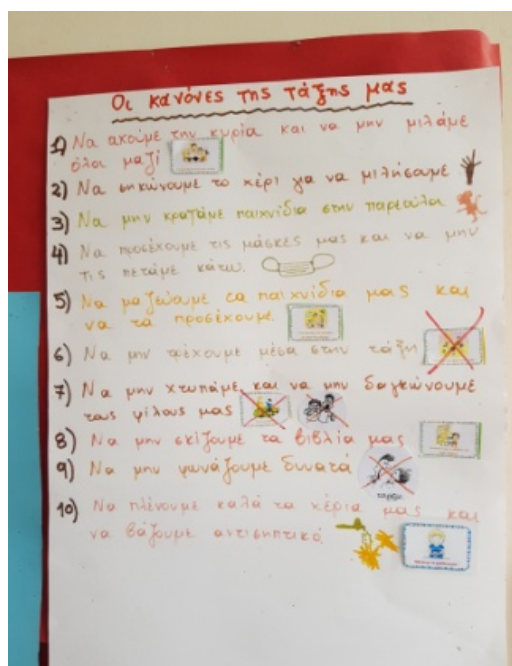 Οι κανόνες της τάξης μας
1) Να ακούμε την κυρία και να μην μιλάμε
όλοι μαζί
2) Να σηκώνουμε το χέρι για να μιλήσουμε
3) Να μην κρατάμε παιχνίδια στην παρεούλα
4) Να προσέχουμε τις μάσκες μας και να μην
τις πετάμε κάτω.
5) Να μαζεύουμε τα παιχνίδια μας και
να τα προσέχουμε
6) Να μην τρέχουμε μέσα στην τάξη
7) Να μην χτυπάμε και να μην δαγκώνουμε
τους φίλους μας
8) Να μην σκίζουμε τα βιβλία μας
9) Να μην φωνάζουμε δυνατά
10) Να πλένουμε καλά τα χέρια μας και
να βάζουμε αντισηπτικό